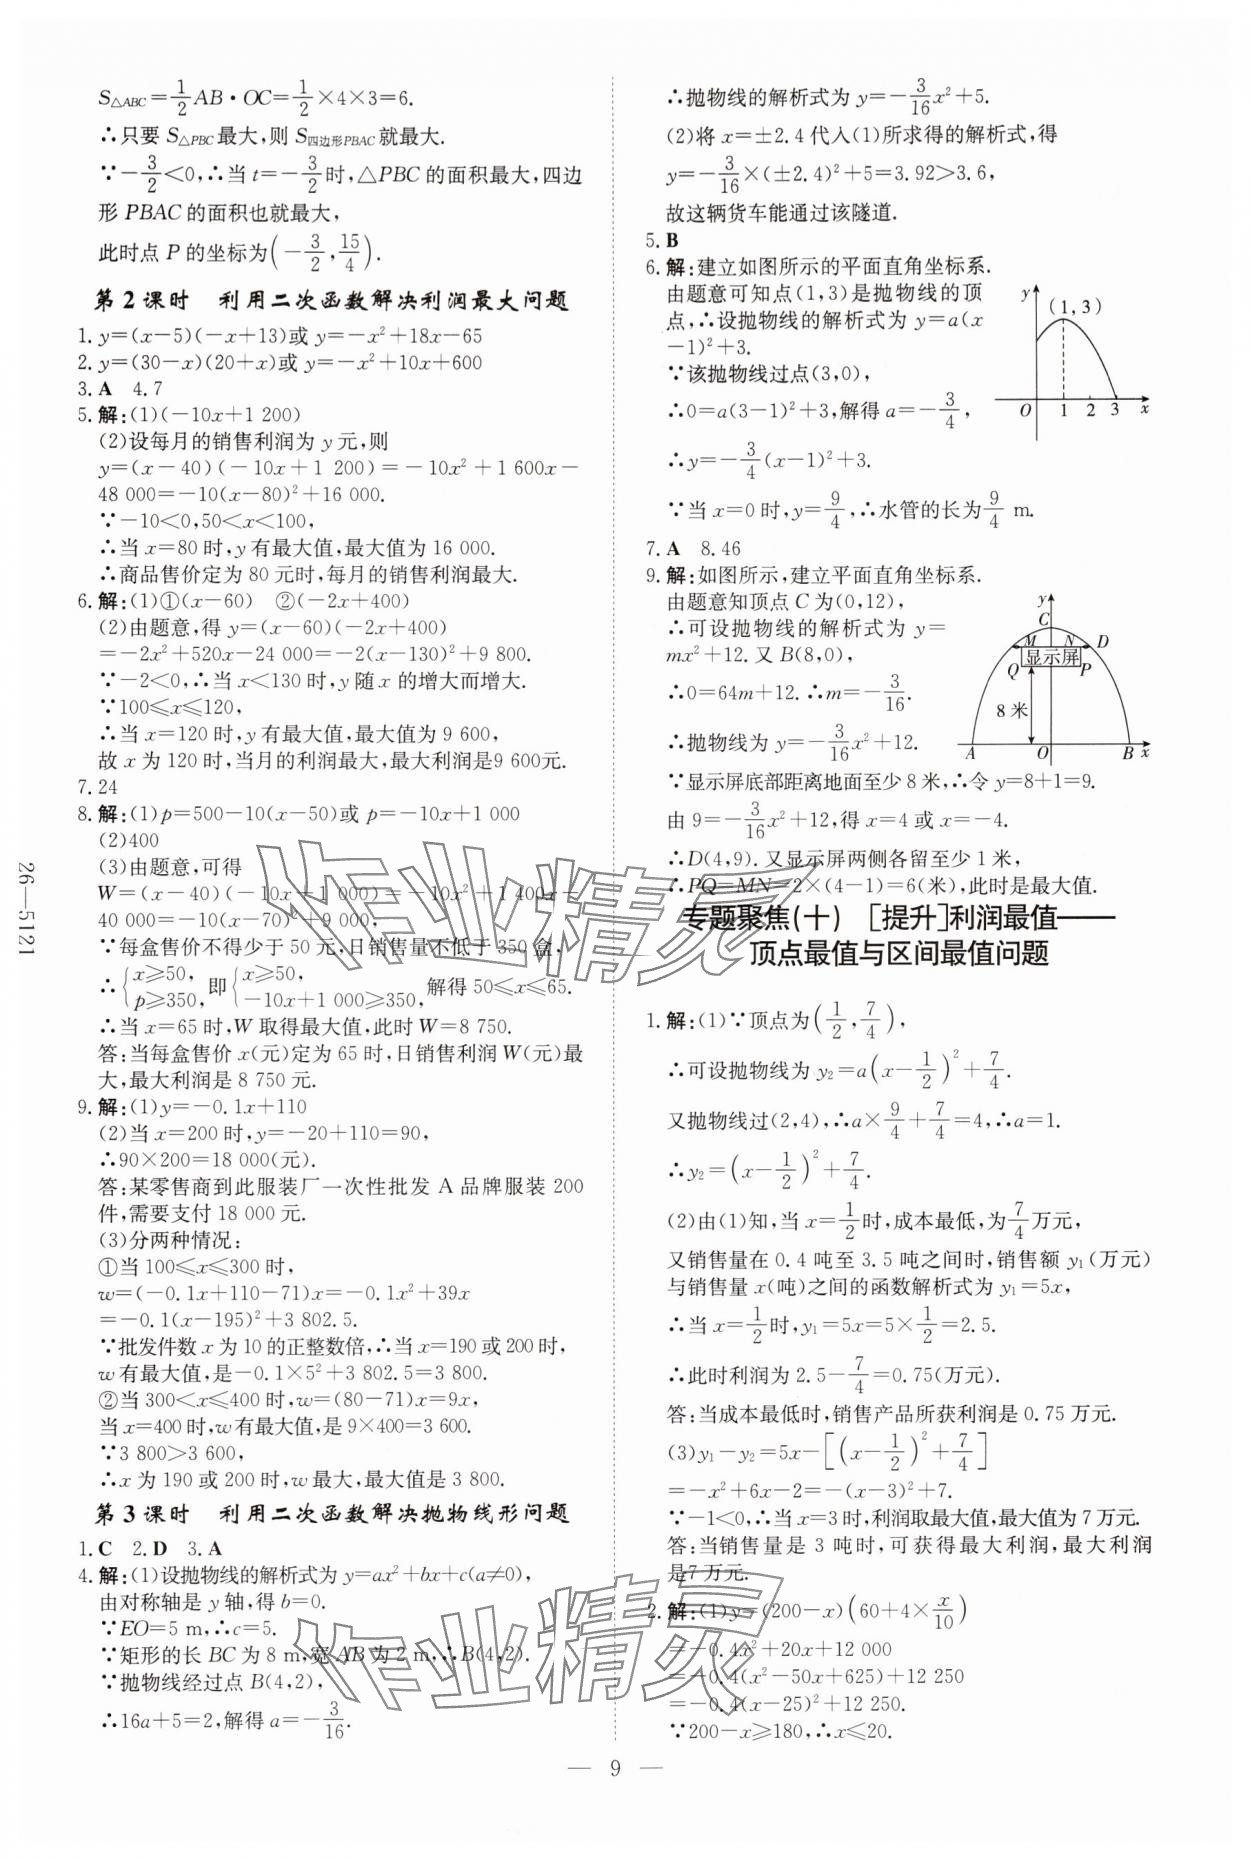 S△ABC=1/2AB·OC=1/2×4×3=6.
∴只要 S△PBC最大,则 S四边形PBAC就最大.
∵-3/2<0,∴当 t=-3/2时,△PBC的面积最大,四边
形 PBAC的面积也就最大,
此时点 P 的坐标为(-3/2,15/4).
第2课时 利用二次函数解决利润最大问题
1. y=(x-5)(-x+13)或 y=-x²+18x-65
2. y=(30-x)(20+x)或 y=-x²+10x+600
3. A 4.7
5. 解:(1)(-10x+1 200)
(2)设每月的销售利润为 y 元,则
y=(x-40)(-10x+1 200)=-10x²+1 600x-
48 000=-10(x-80)²+16 000.
∵-10<0,50<x<100,
∴当 x=80 时,y 有最大值,最大值为 16 000.
∴商品售价定为 80 元时,每月的销售利润最大.
6. 解:(1)①(x-60) ②(-2x+400)
(2)由题意,得 y=(x-60)(-2x+400)
=-2x²+520x-24 000=-2(x-130)²+9 800.
∵-2<0,∴当 x<130 时,y 随 x 的增大而增大.
∵100≤x≤120,
∴当 x=120 时,y 有最大值,最大值为 9 600,
故 x 为 120 时,当月的利润最大,最大利润是9 600元.
7. 24
8. 解:(1)p=500-10(x-50)或 p=-10x+1 000
(2)400
(3)由题意,可得
W=(x-40)(-10x+1 000)=-10x²+1 400x-
40 000=-10(x-70)²+9 000,
∵每盒售价不得少于 50 元,日销售量不低于 350 盒,
∴{x≥50, p≥350, 即{x≥50, -10x+1 000≥350, 解得 50≤x≤65.
∴当 x=65 时,W 取得最大值,此时 W=8 750.
答:当每盒售价 x(元)定为 65 时,日销售利润 W(元)最
大,最大利润是 8 750 元.
9. 解:(1)y=-0.1x+110
(2)当 x=200 时,y=-20+110=90,
∴90×200=18 000(元).
答:某零售商到此服装厂一次性批发 A 品牌服装 200
件,需要支付 18 000 元.
(3)分两种情况:
①当 100≤x≤300 时,
w=(-0.1x+110-71)x=-0.1x²+39x
=-0.1(x-195)²+3 802.5.
∵批发件数 x 为 10 的正整数倍,∴当 x=190 或 200 时,
w 有最大值,是-0.1×5²+3 802.5=3 800.
②当 300<x≤400 时,w=(80-71)x=9x,
当 x=400 时,w 有最大值,是 9×400=3 600.
∵3 800>3 600,
∴x 为 190 或 200 时,w 最大,最大值是 3 800.
第3课时 利用二次函数解决抛物线形问题
1. C 2. D 3. A
4. 解:(1)设抛物线的解析式为 y=ax²+bx+c(a≠0),
由对称轴是 y 轴,得 b=0.
∵EO=5 m,∴c=5.
∵矩形的长 BC 为 8 m,宽 AB 为 2 m,∴B(4,2).
∵抛物线经过点 B(4,2),
∴16a+5=2,解得 a=-3/16.
∴抛物线的解析式为 y=-3/16x²+5.
(2)将 x=±2.4 代入(1)所求得的解析式,得
y=-3/16×(±2.4)²+5=3.92>3.6,
故这辆货车能通过该隧道.
5. B
6. 解:建立如图所示的平面直角坐标系.
由题意可知点(1,3)是抛物线的顶
点,∴设抛物线的解析式为 y=a(x
-1)²+3.
∵该抛物线过点(3,0),
∴0=a(3-1)²+3,解得 a=-3/4,
∴y=-3/4(x-1)²+3.
∵当 x=0 时,y=9/4,∴水管的长为9/4 m.
y
(1,3)
O 1 2 3 x
7. A 8. 46
9. 解:如图所示,建立平面直角坐标系.
由题意知顶点 C 为(0,12),
∴可设抛物线的解析式为 y=
mx²+12. 又 B(8,0),
∴0=64m+12. ∴m=-3/16.
∴抛物线为 y=-3/16x²+12.
y
C
M N D
显示屏
Q P
8米
A O B x
∵显示屏底部距离地面至少 8 米,∴令 y=8+1=9.
由 9=-3/16x²+12,得 x=4 或 x=-4.
∴D(4,9). 又显示屏两侧各留至少 1 米,
∴PQ=MN=2×(4-1)=6(米),此时是最大值.
专题聚焦(十) [提升]利润最值——
顶点最值与区间最值问题
1. 解:(1)∵顶点为(1/2,7/4),
∴可设抛物线为 y₂=a(x-1/2)²+7/4.
又抛物线过(2,4),∴a×9/4+7/4=4,∴a=1.
∴y₂=(x-1/2)²+7/4.
(2)由(1)知,当 x=1/2时,成本最低,为7/4万元,
又销售量在 0.4 吨至 3.5 吨之间时,销售额 y₁(万元)
与销售量 x(吨)之间的函数解析式为 y₁=5x,
∴当 x=1/2时,y₁=5x=5×1/2=2.5.
∴此时利润为 2.5-7/4=0.75(万元).
答:当成本最低时,销售产品所获利润是 0.75 万元.
(3)y₁-y₂=5x-[(x-1/2)²+7/4]
=-x²+6x-2=-(x-3)²+7.
∵-1<0,∴当 x=3 时,利润取最大值,最大值为 7 万元.
答:当销售量是 3 吨时,可获得最大利润,最大利润
是7 万元.
2. 解:(1)y=(200-x)(60+4×x/10)
=-0.4x²+20x+12 000
=-0.4(x²-50x+625)+12 250
=-0.4(x-25)²+12 250.
∵200-x≥180,∴x≤20.
— 9 —
26—5121
作业精灵
作业精灵